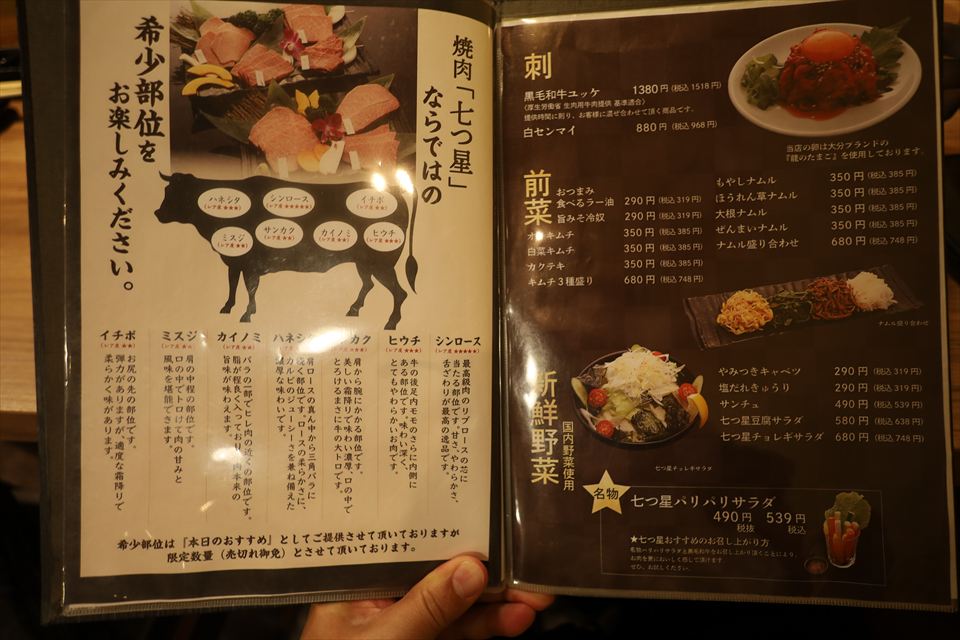 焼肉「七つ星」
ならではの
希少部位を
お楽しみください。
ハネシタ
(レア度 ★★★)
シンロース
(レア度 ★★★★★)
イチボ
(レア度 ★★★)
ミスジ
(レア度 ★★)
サンカク
(レア度 ★★)
カイノミ
(レア度 ★★)
ヒウチ
(レア度 ★★★)
シンロース
(レア度 ★★★★★)
最高級肉のリブロースの芯に
当たる部位です。甘さ、やわらかさ、
舌ざわりが最高の逸品です。
ヒウチ
(レア度 ★★★)
牛の後足内モモのさらに内側に
ある部位です。味わい深く、
とてもやわらかいお肉です。
カク
肩から腕にかかる部位です。
美しい霜降りで味わい濃厚、口の中で
とろけるまさに牛の大トロです。
ハネシ
肩ロースの真ん中から三角バラに
続く部位です。ロースの柔らかさに、
カルビのジューシーさを兼ね備えた
濃厚な味わいです。
カイノミ
(レア度 ★★)
バラの一部でヒレ肉の近くの部位です。
脂が程良く入っており、肉本来の
旨味が味わえます。
ミスジ
肩の中程の部位です。
口の中でトロけて肉の甘みと
風味を堪能できます。
イチボ
(レア度 ★★★)
お尻の先の部部位です。
弾力がありますが、適度な霜降りで
柔らかく味があります。
希少部位は『本日のおすすめ』としてご提供させて頂いておりますが
限定数量（売切れ御免）とさせて頂いております。
刺
黒毛和牛ユッケ 1380円 (税込 1518円)
(厚生労働省 生肉用牛肉提供 基準適合)
提供時間に則り、お客様に混ぜ合わせて頂く商品です。
白センマイ 880円 (税込 968円)
当店の卵は大分ブランドの
『龍のたまご』を使用しております。
前菜
おつまみ
食べるラー油 290円 (税込 319円)
旨みそ冷奴 290円 (税込 319円)
キムチ 350円 (税込 385円)
白菜キムチ 350円 (税込 385円)
カクテキ 350円 (税込 385円)
キムチ3種盛り 680円 (税込 748円)
もやしナムル 350円 (税込 385円)
ほうれん草ナムル 350円 (税込 385円)
大根ナムル 350円 (税込 385円)
ぜんまいナムル 350円 (税込 385円)
ナムル盛り合わせ 680円 (税込 748円)
ナムル盛り合わせ
新鮮野菜
国内野菜使用
やみつきキャベツ 290円 (税込 319円)
塩だれきゅうり 290円 (税込 319円)
サンチュ 490円 (税込 539円)
七つ星豆腐サラダ 580円 (税込 638円)
七つ星チョレギサラダ 680円 (税込 748円)
七つ星チョレギサラダ
名物
七つ星パリパリサラダ
490円 539円
税抜 税込
★七つ星おすすめのお召し上がり方
名物パリパリサラダと黒毛和牛をお召し上がり頂くことにより、
お肉を更においしく感じて頂けます。
ぜひ、お試しください。